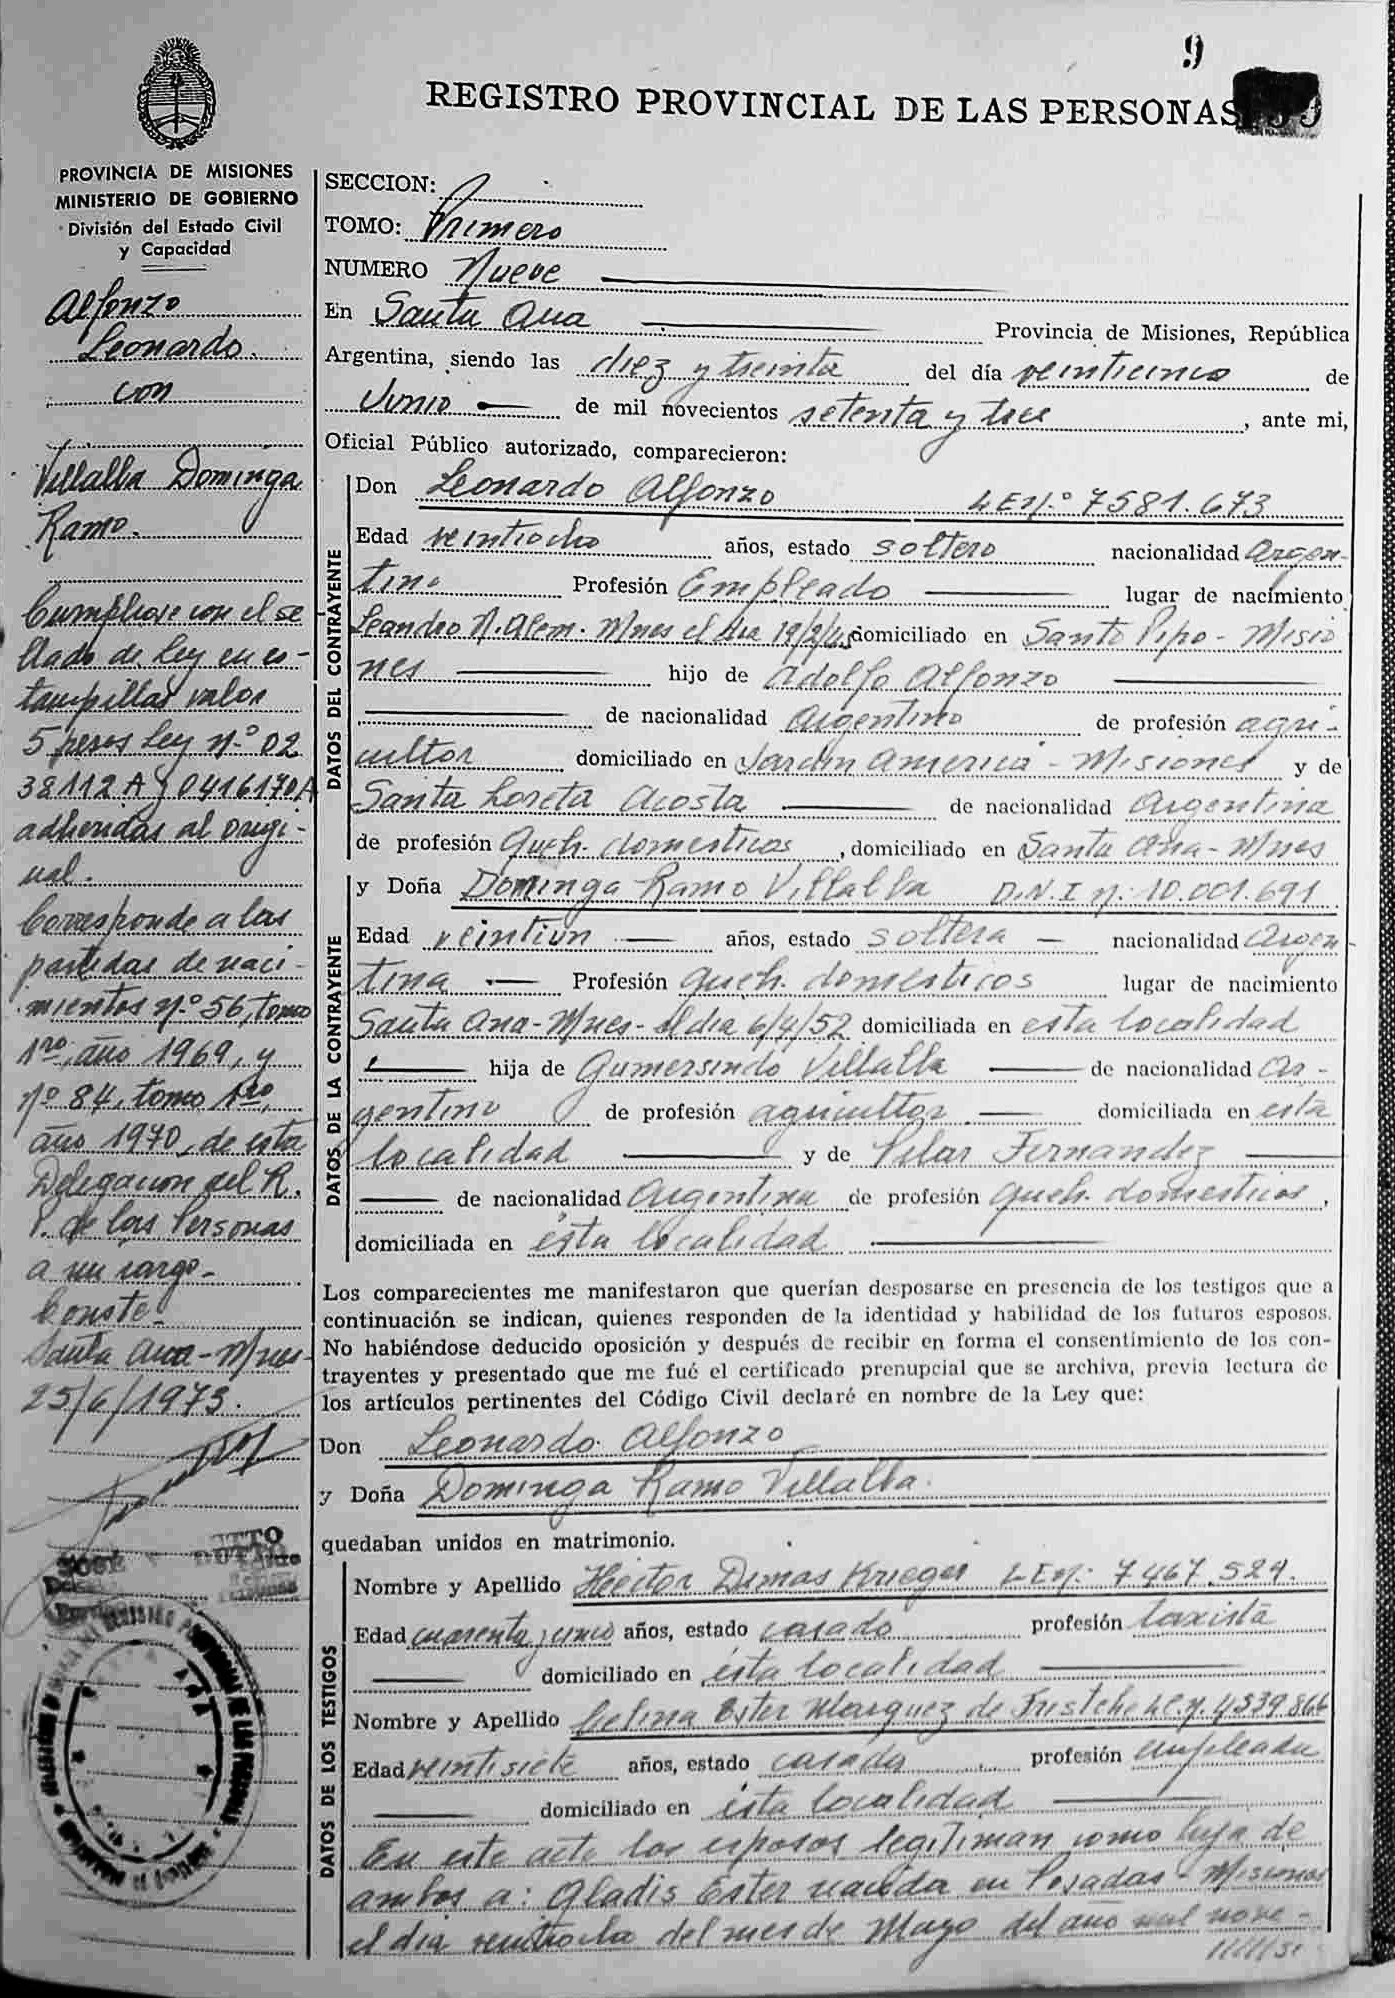 9
REGISTRO PROVINCIAL DE LAS PERSONAS
PROVINCIA DE MISIONES
MINISTERIO DE GOBIERNO
División del Estado Civil
y Capacidad
Alfonzo
Leonardo.
con
Villalba Dominga
Ramo.
Cumplióse con el se
llado de Ley en es-
tampillas valor
5 pesos Ley Nº 02
38112 A y 0416170A
adheridas al origi-
nal.
Corresponde a las
partidas de naci-
mientos Nº 56, tomo
1ro, año 1969, y
Nº 84, tomo 1ro,
año 1970, de esta
Delegacion del R.
P. de las Personas
a mi cargo-
Conste-
Santa Ana-Mnes-
25/6/1973.
JOSE DUTTO
SECCION:
TOMO: Primero
NUMERO Nueve
En Santa Ana Provincia de Misiones, República
Argentina, siendo las diez y treinta del día veinticinco de
Junio de mil novecientos setenta y tres, ante mi,
Oficial Público autorizado, comparecieron:
DATOS DEL CONTRAYENTE
Don Leonardo Alfonzo L E Nº 7581.673
Edad veintiocho años, estado soltero nacionalidad Argen-
tino Profesión Empleado lugar de nacimiento
Leandro N. Alem. Mnes el dia 19/2/45 domiciliado en Santo Pipo - Misio
nes hijo de Adolfo Alfonzo
de nacionalidad Argentino de profesión agri-
cultor domiciliado en Jardin America - Misiones y de
Santa Loreta Acosta de nacionalidad Argentina
de profesión Queh. domesticos, domiciliado en Santa Ana - Mnes
DATOS DE LA CONTRAYENTE
y Doña Dominga Ramo Villalba D.N.I Nº: 10.001.691
Edad veintiun años, estado soltera - nacionalidad Argen-
tina Profesión queh. domesticos lugar de nacimiento
Santa Ana-Mnes- el dia 6/4/52 domiciliada en esta localidad
hija de Gumersindo Villalba de nacionalidad Ar-
gentino de profesión agricultor domiciliada en esta
localidad y de Pilar Fernandez
de nacionalidad Argentina de profesión queh. domesticos,
domiciliada en ésta localidad
Los comparecientes me manifestaron que querían desposarse en presencia de los testigos que a
continuación se indican, quienes responden de la identidad y habilidad de los futuros esposos.
No habiéndose deducido oposición y después de recibir en forma el consentimiento de los con-
trayentes y presentado que me fué el certificado prenupcial que se archiva, previa lectura de
los artículos pertinentes del Código Civil declaré en nombre de la Ley que:
Don Leonardo Alfonzo
y Doña Dominga Ramo Villalba.
quedaban unidos en matrimonio.
DATOS DE LOS TESTIGOS
Nombre y Apellido Hector Dimas Krieger L E Nº: 7467.529.
Edad cuarenta y cinco años, estado casado profesión taxista
domiciliado en ésta localidad
Nombre y Apellido Celina Ester Marquez de L.C.N. 4339.866
Edad veintisiete años, estado casada profesión empleada
domiciliado en ésta localidad
En este acto los esposos legitiman como hija de
ambos a: Gladis Ester nacida en Posadas - Misiones
el dia veintiocho del mes de Mayo del año mil nove-